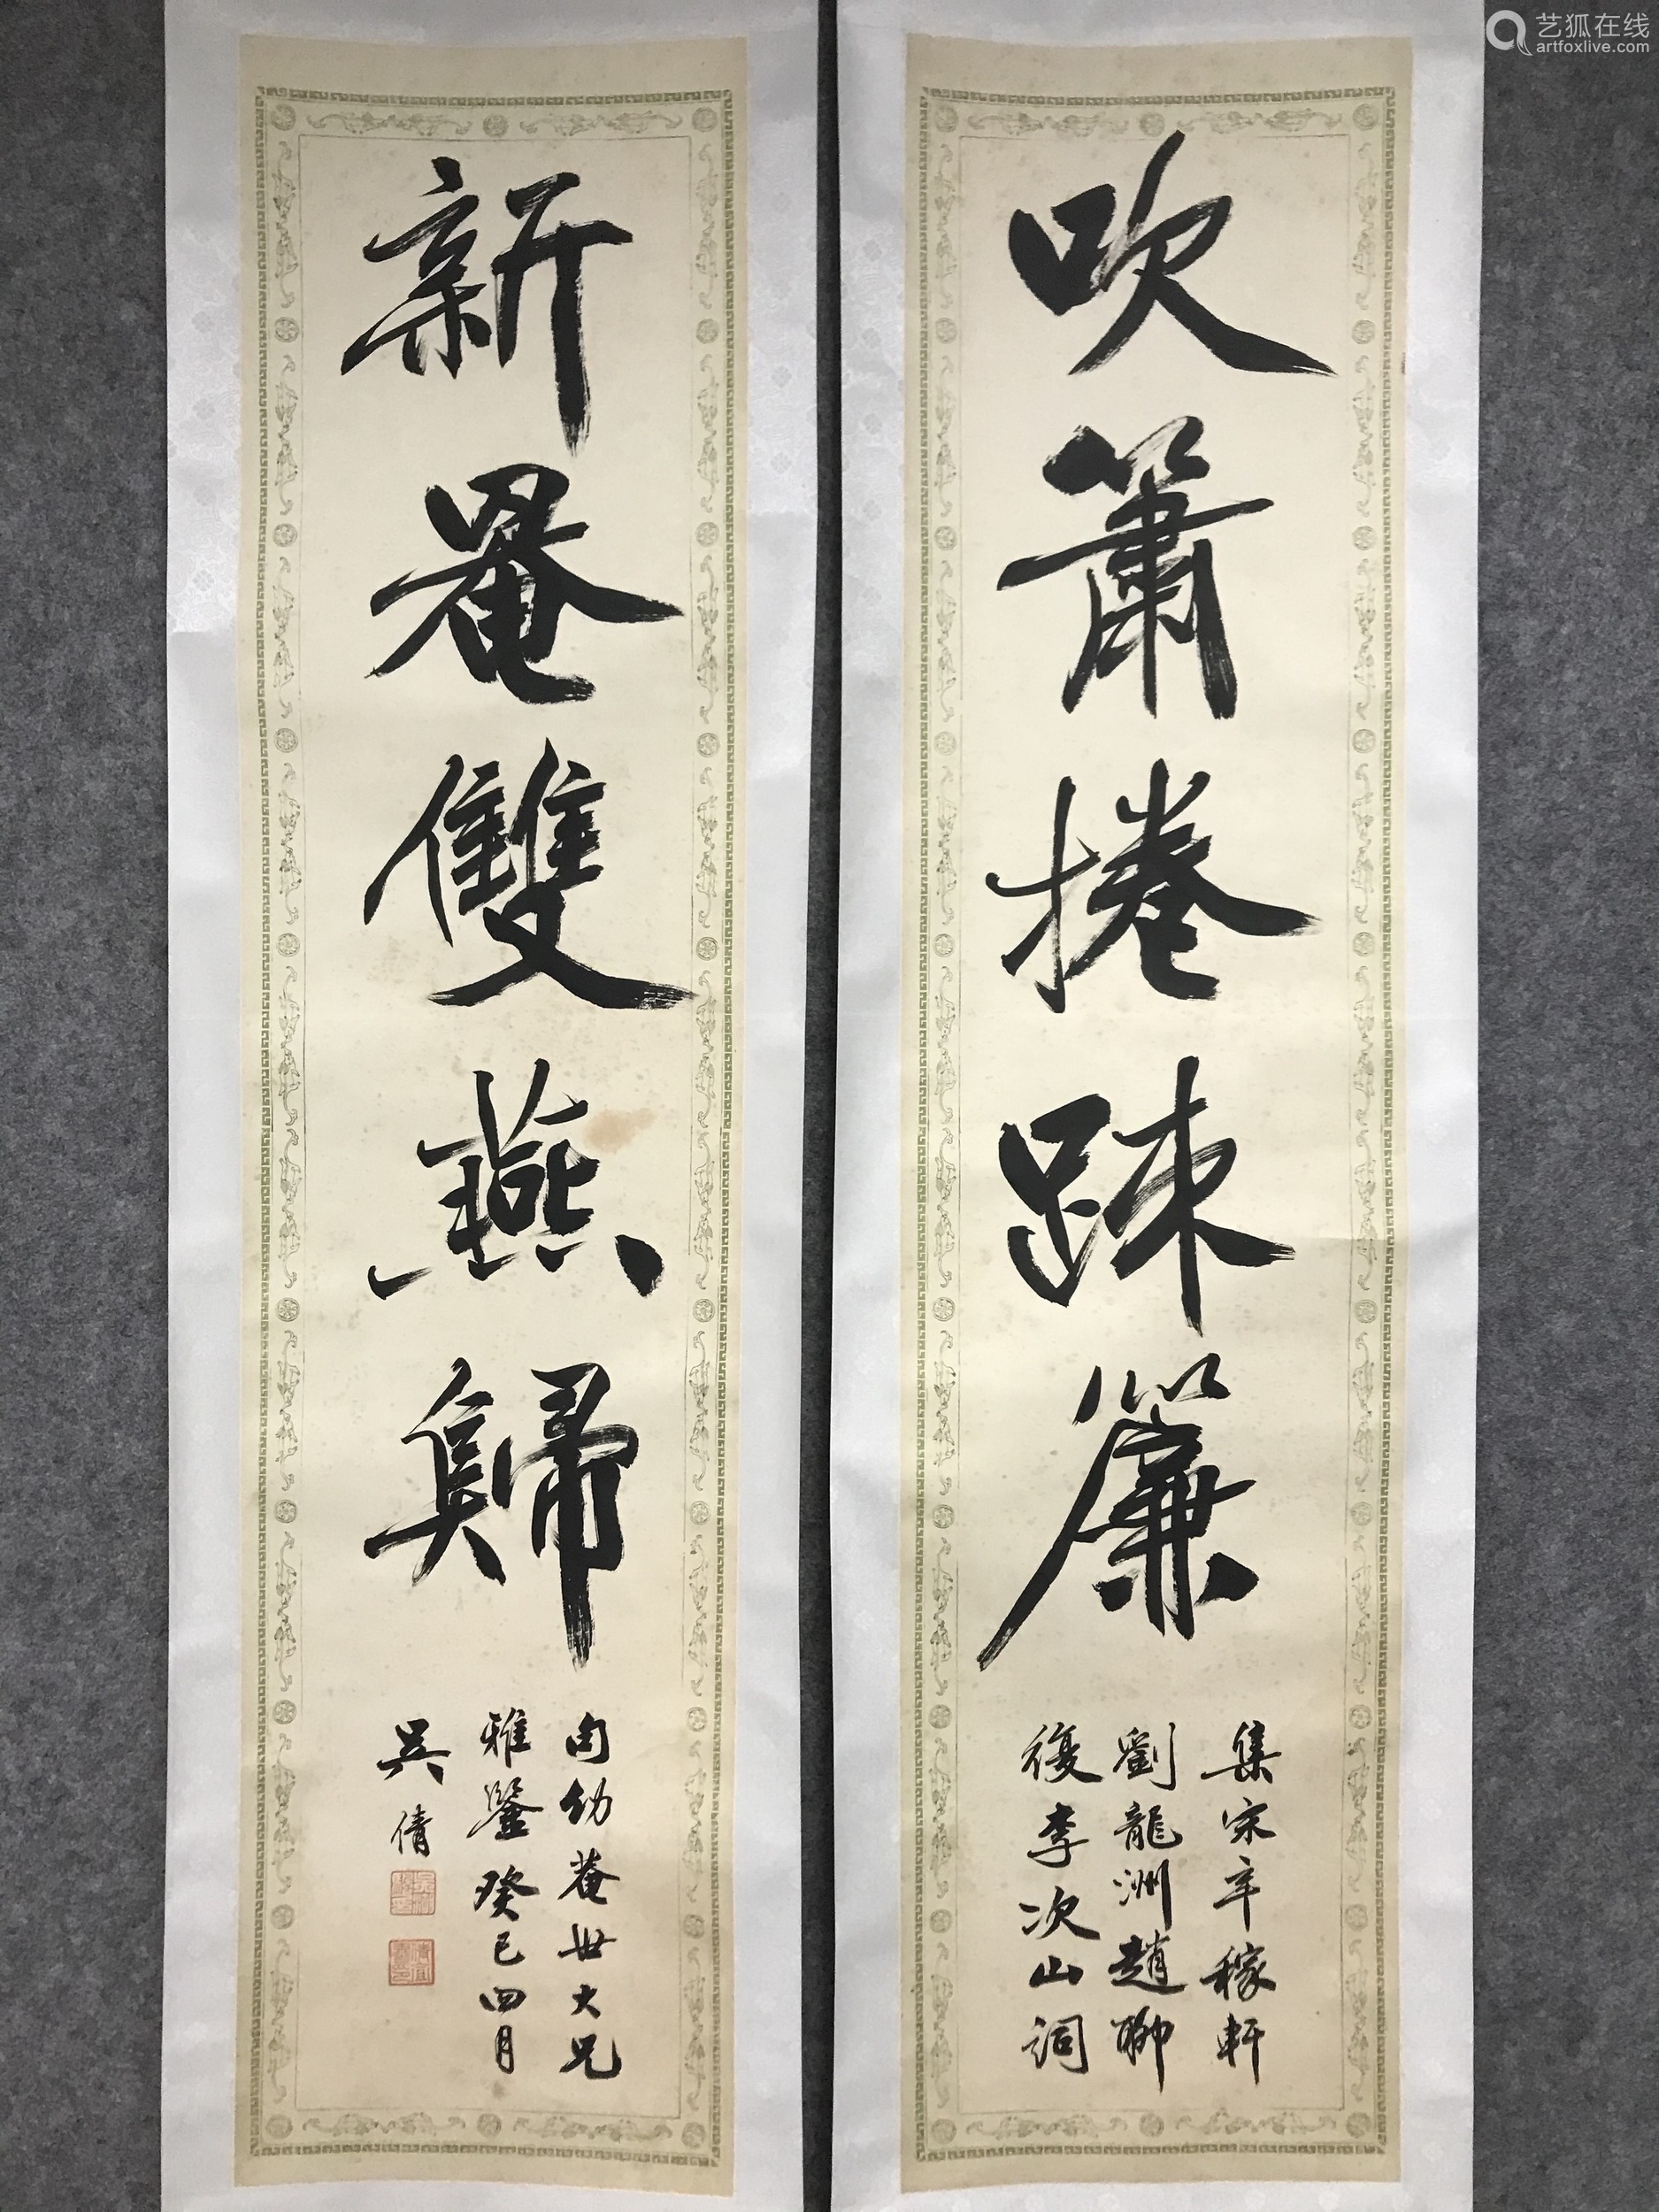 吹簫捲踈簾
集宋辛稼軒
劉龍洲趙聊
復李次山詞
新罨雙燕歸
句幼菴世大兄
雅鑒癸巳四月
吳倩
艺狐在线
artfoxlive.com